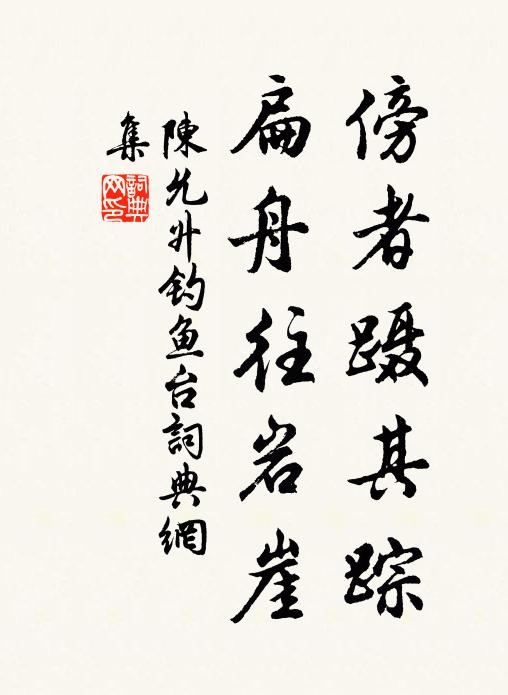 傍者蹑其踪
扁舟往岩崖
陳允升钓鱼台詞典網
集
詞典网印